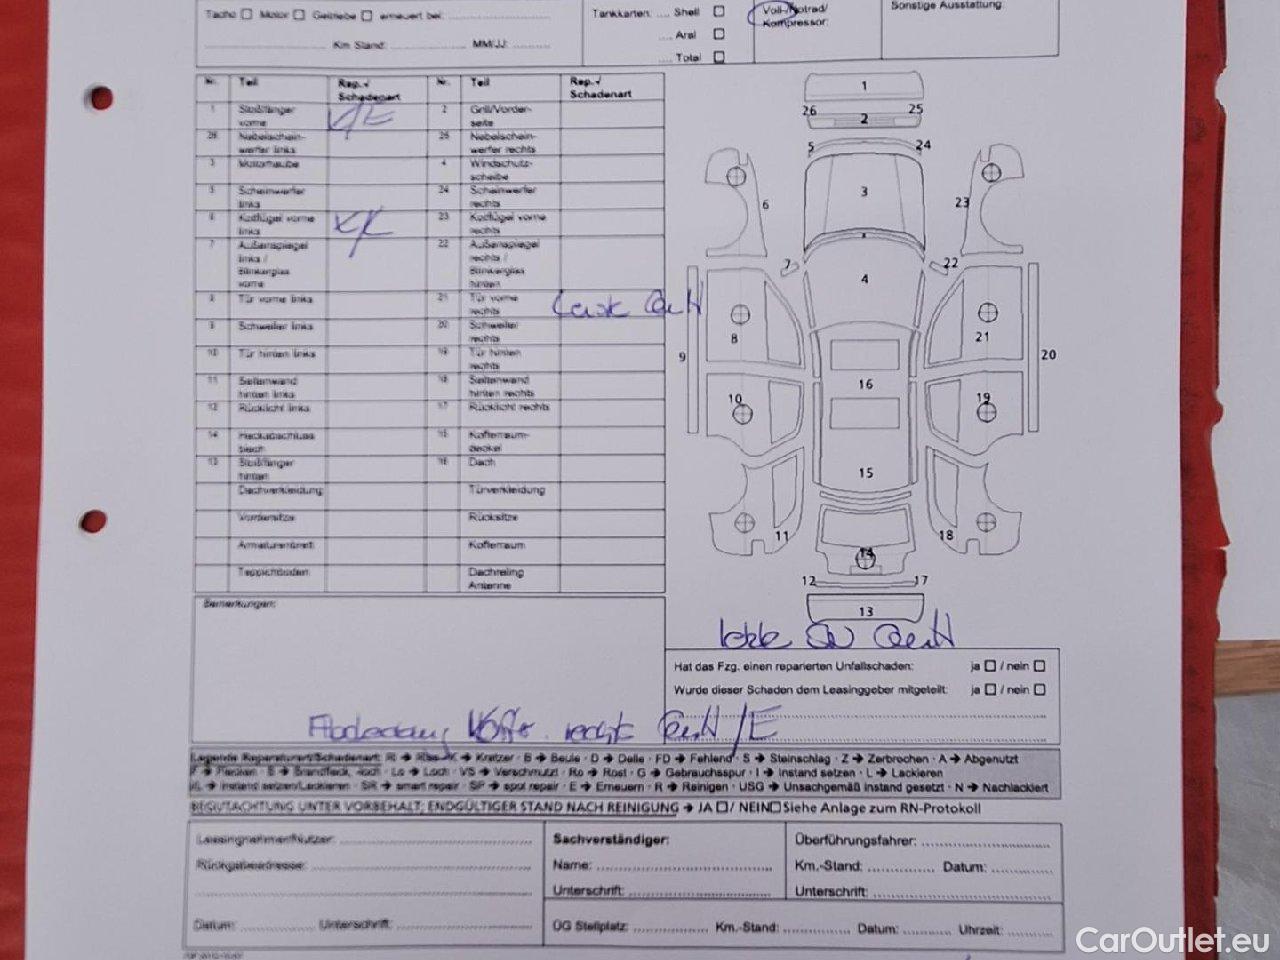 Tacho Motor Getriebe erneuert bei:
Km Stand: MM/JJ:
Tankkarten: .... Shell
.... Aral
.... Total
Voll-/Notrad/
Kompressor:
Sonstige Ausstattung:
Nr. Teil Rep./ Schadenart Nr. Teil Rep./ Schadenart
1 Stoßfänger vorne K/E 2 Grill/Vorder-seite
26 Nebelschein-werfer links 25 Nebelschein-werfer rechts
3 Motorhaube 4 Windschutz-scheibe
5 Scheinwerfer links 24 Scheinwerfer rechts
6 Kotflügel vorne links 23 Kotflügel vorne rechts
7 Außenspiegel links / Blinkerglas vorne 22 Außenspiegel rechts / Blinkerglas hinten
8 Tür vorne links 21 Tür vorne rechts
9 Schweller links 20 Schweller rechts
10 Tür hinten links 19 Tür hinten rechts
11 Seitenwand hinten links 18 Seitenwand hinten rechts
12 Rücklicht links 17 Rücklicht rechts
14 Heckabschluss blech 15 Kofferraum-deckel
13 Stoßfänger hinten 16 Dach
Dachverkleidung Türverkleidung
Vordersitze Rücksitze
Armaturenbrett Kofferraum
Teppichboden Dachreling Antenne
1
26 25
2
5 24
3
6 23
7 22
4
8 21
9 20
16
10 19
15
11 18
14
12 17
13
Bemerkungen:
Hat das Fzg. einen reparierten Unfallschaden: ja / nein
Wurde dieser Schaden dem Leasinggeber mitgeteilt: ja / nein
rechts
Legende Reparaturart/Schadenart: R ➔ Riss · K ➔ Kratzer · B ➔ Beule · D ➔ Delle · FD ➔ Fehlend · S ➔ Steinschlag · Z ➔ Zerbrochen · A ➔ Abgenutzt
F ➔ Flecken · B ➔ Brandfleck, -loch · Lo ➔ Loch · VS ➔ Verschmutzt · Ro ➔ Rost · G ➔ Gebrauchsspur · I ➔ Instand setzen · L ➔ Lackieren
IL ➔ Instand setzen/Lackieren · SR ➔ smart repair · SP ➔ spot repair · E ➔ Erneuern · R ➔ Reinigen · USG ➔ Unsachgemäß instand gesetzt · N ➔ Nachlackiert
BEGUTACHTUNG UNTER VORBEHALT; ENDGÜLTIGER STAND NACH REINIGUNG ➔ JA / NEIN Siehe Anlage zum RN-Protokoll
Leasingnehmer/Nutzer:
Rückgabeadresse:
Datum: Unterschrift:
Sachverständiger:
Name:
Unterschrift:
Überführungsfahrer:
Km.-Stand: Datum:
Unterschrift:
ÜG Stellplatz: Km.-Stand: Datum: Uhrzeit:
CarOutlet.eu